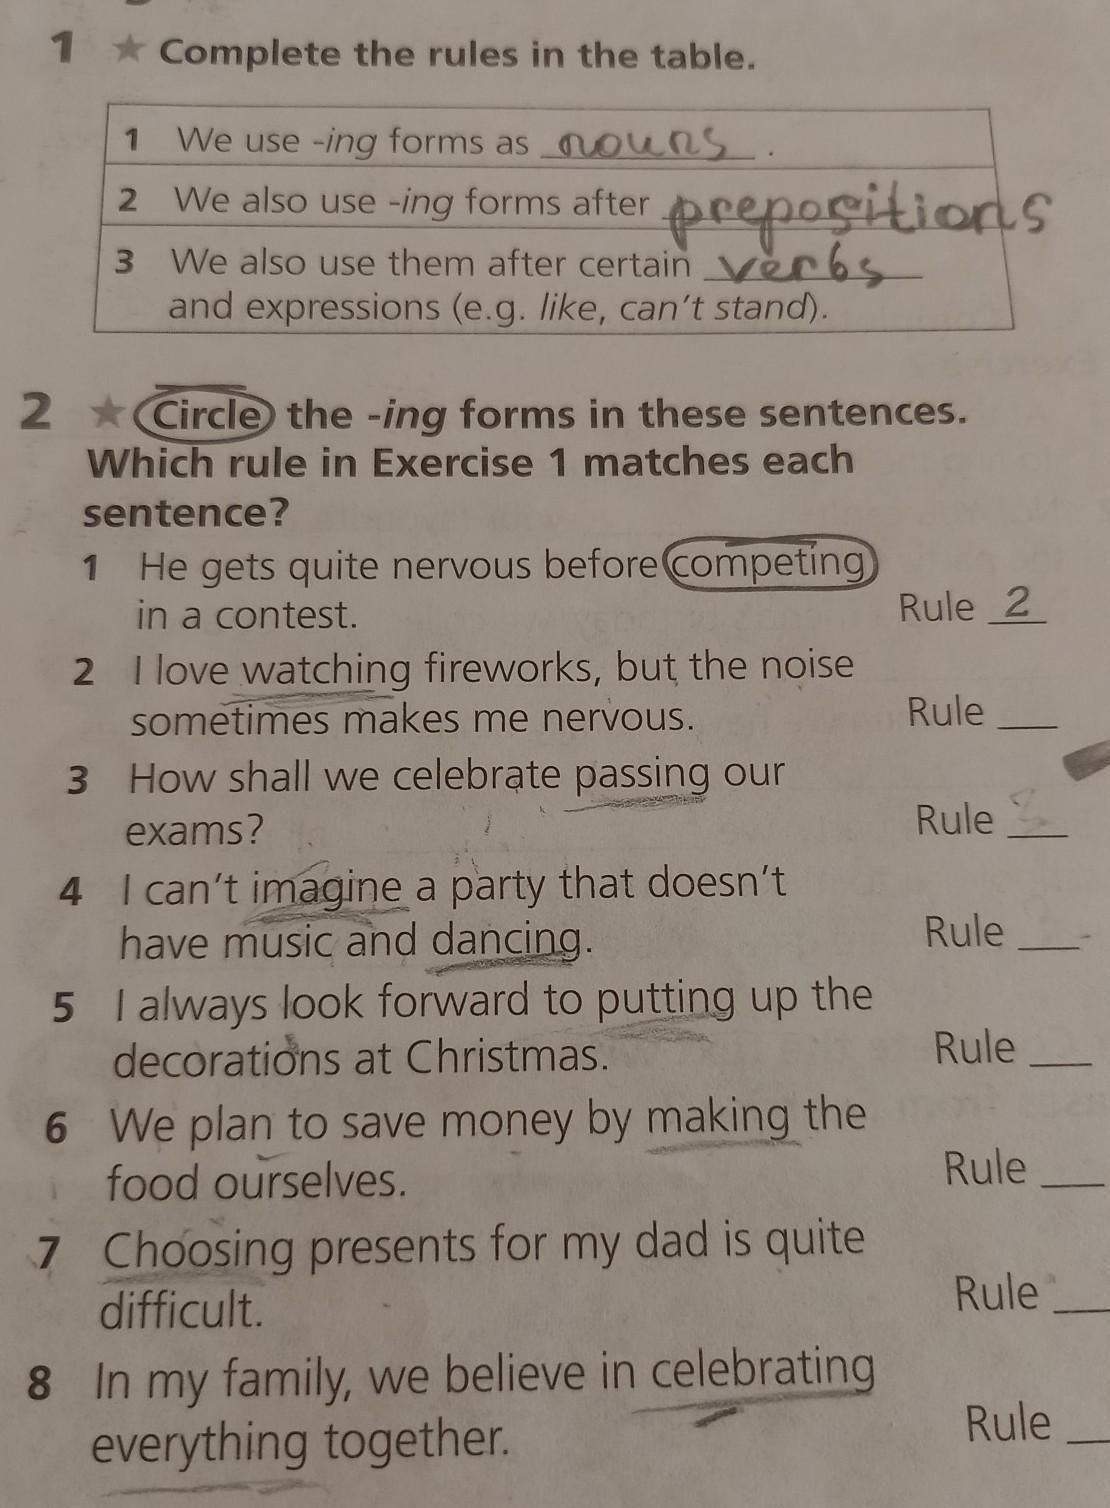 1 ★ Complete the rules in the table.
1 We use -ing forms as nouns .
2 We also use -ing forms after prepositions
3 We also use them after certain verbs
and expressions (e.g. like, can't stand).
2 ★ Circle the -ing forms in these sentences.
Which rule in Exercise 1 matches each
sentence?
1 He gets quite nervous before competing
in a contest. Rule 2
2 I love watching fireworks, but the noise
sometimes makes me nervous. Rule ___
3 How shall we celebrate passing our
exams? Rule ___
4 I can't imagine a party that doesn't
have music and dancing. Rule ___
5 I always look forward to putting up the
decorations at Christmas. Rule ___
6 We plan to save money by making the
food ourselves. Rule ___
7 Choosing presents for my dad is quite
difficult. Rule ___
8 In my family, we believe in celebrating
everything together. Rule ___